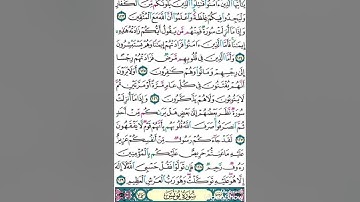 يَٰٓأَيُّهَا ٱلَّذِينَ ءَامَنُوا۟ قَٰتِلُوا۟ ٱلَّذِينَ يَلُونَكُم مِّنَ ٱلْكُفَّارِ
وَلْيَجِدُوا۟ فِيكُمْ غِلْظَةً وَٱعْلَمُوٓا۟ أَنَّ ٱللَّهَ مَعَ ٱلْمُتَّقِينَ ١٢٣
وَإِذَا مَآ أُنزِلَتْ سُورَةٌ فَمِنْهُم مَّن يَقُولُ أَيُّكُمْ زَادَتْهُ هَٰذِهِۦٓ
إِيمَٰنًا فَأَمَّا ٱلَّذِينَ ءَامَنُوا۟ فَزَادَتْهُمْ إِيمَٰنًا وَهُمْ يَسْتَبْشِرُونَ
١٢٤ وَأَمَّا ٱلَّذِينَ فِى قُلُوبِهِم مَّرَضٌ فَزَادَتْهُمْ رِجْسًا
إِلَىٰ رِجْسِهِمْ وَمَاتُوا۟ وَهُمْ كَٰفِرُونَ ١٢٥ أَوَلَا يَرَوْنَ
أَنَّهُمْ يُفْتَنُونَ فِى كُلِّ عَامٍ مَّرَّةً أَوْ مَرَّتَيْنِ ثُمَّ
لَا يَتُوبُونَ وَلَا هُمْ يَذَّكَّرُونَ ١٢٦ وَإِذَا مَآ أُنزِلَتْ
سُورَةٌ نَّظَرَ بَعْضُهُمْ إِلَىٰ بَعْضٍ هَلْ يَرَىٰكُم مِّنْ أَحَدٍ
ثُمَّ ٱنصَرَفُوا۟ صَرَفَ ٱللَّهُ قُلُوبَهُم بِأَنَّهُمْ قَوْمٌ لَّا يَفْقَهُونَ
١٢٧ لَقَدْ جَآءَكُمْ رَسُولٌ مِّنْ أَنفُسِكُمْ عَزِيزٌ
عَلَيْهِ مَا عَنِتُّمْ حَرِيصٌ عَلَيْكُم بِٱلْمُؤْمِنِينَ
رَءُوفٌ رَّحِيمٌ ١٢٨ فَإِن تَوَلَّوْا۟ فَقُلْ حَسْبِىَ ٱللَّهُ لَآ إِلَٰهَ
إِلَّا هُوَ عَلَيْهِ تَوَكَّلْتُ وَهُوَ رَبُّ ٱلْعَرْشِ ٱلْعَظِيمِ ١٢٩
سُورَةُ يُونُسَ